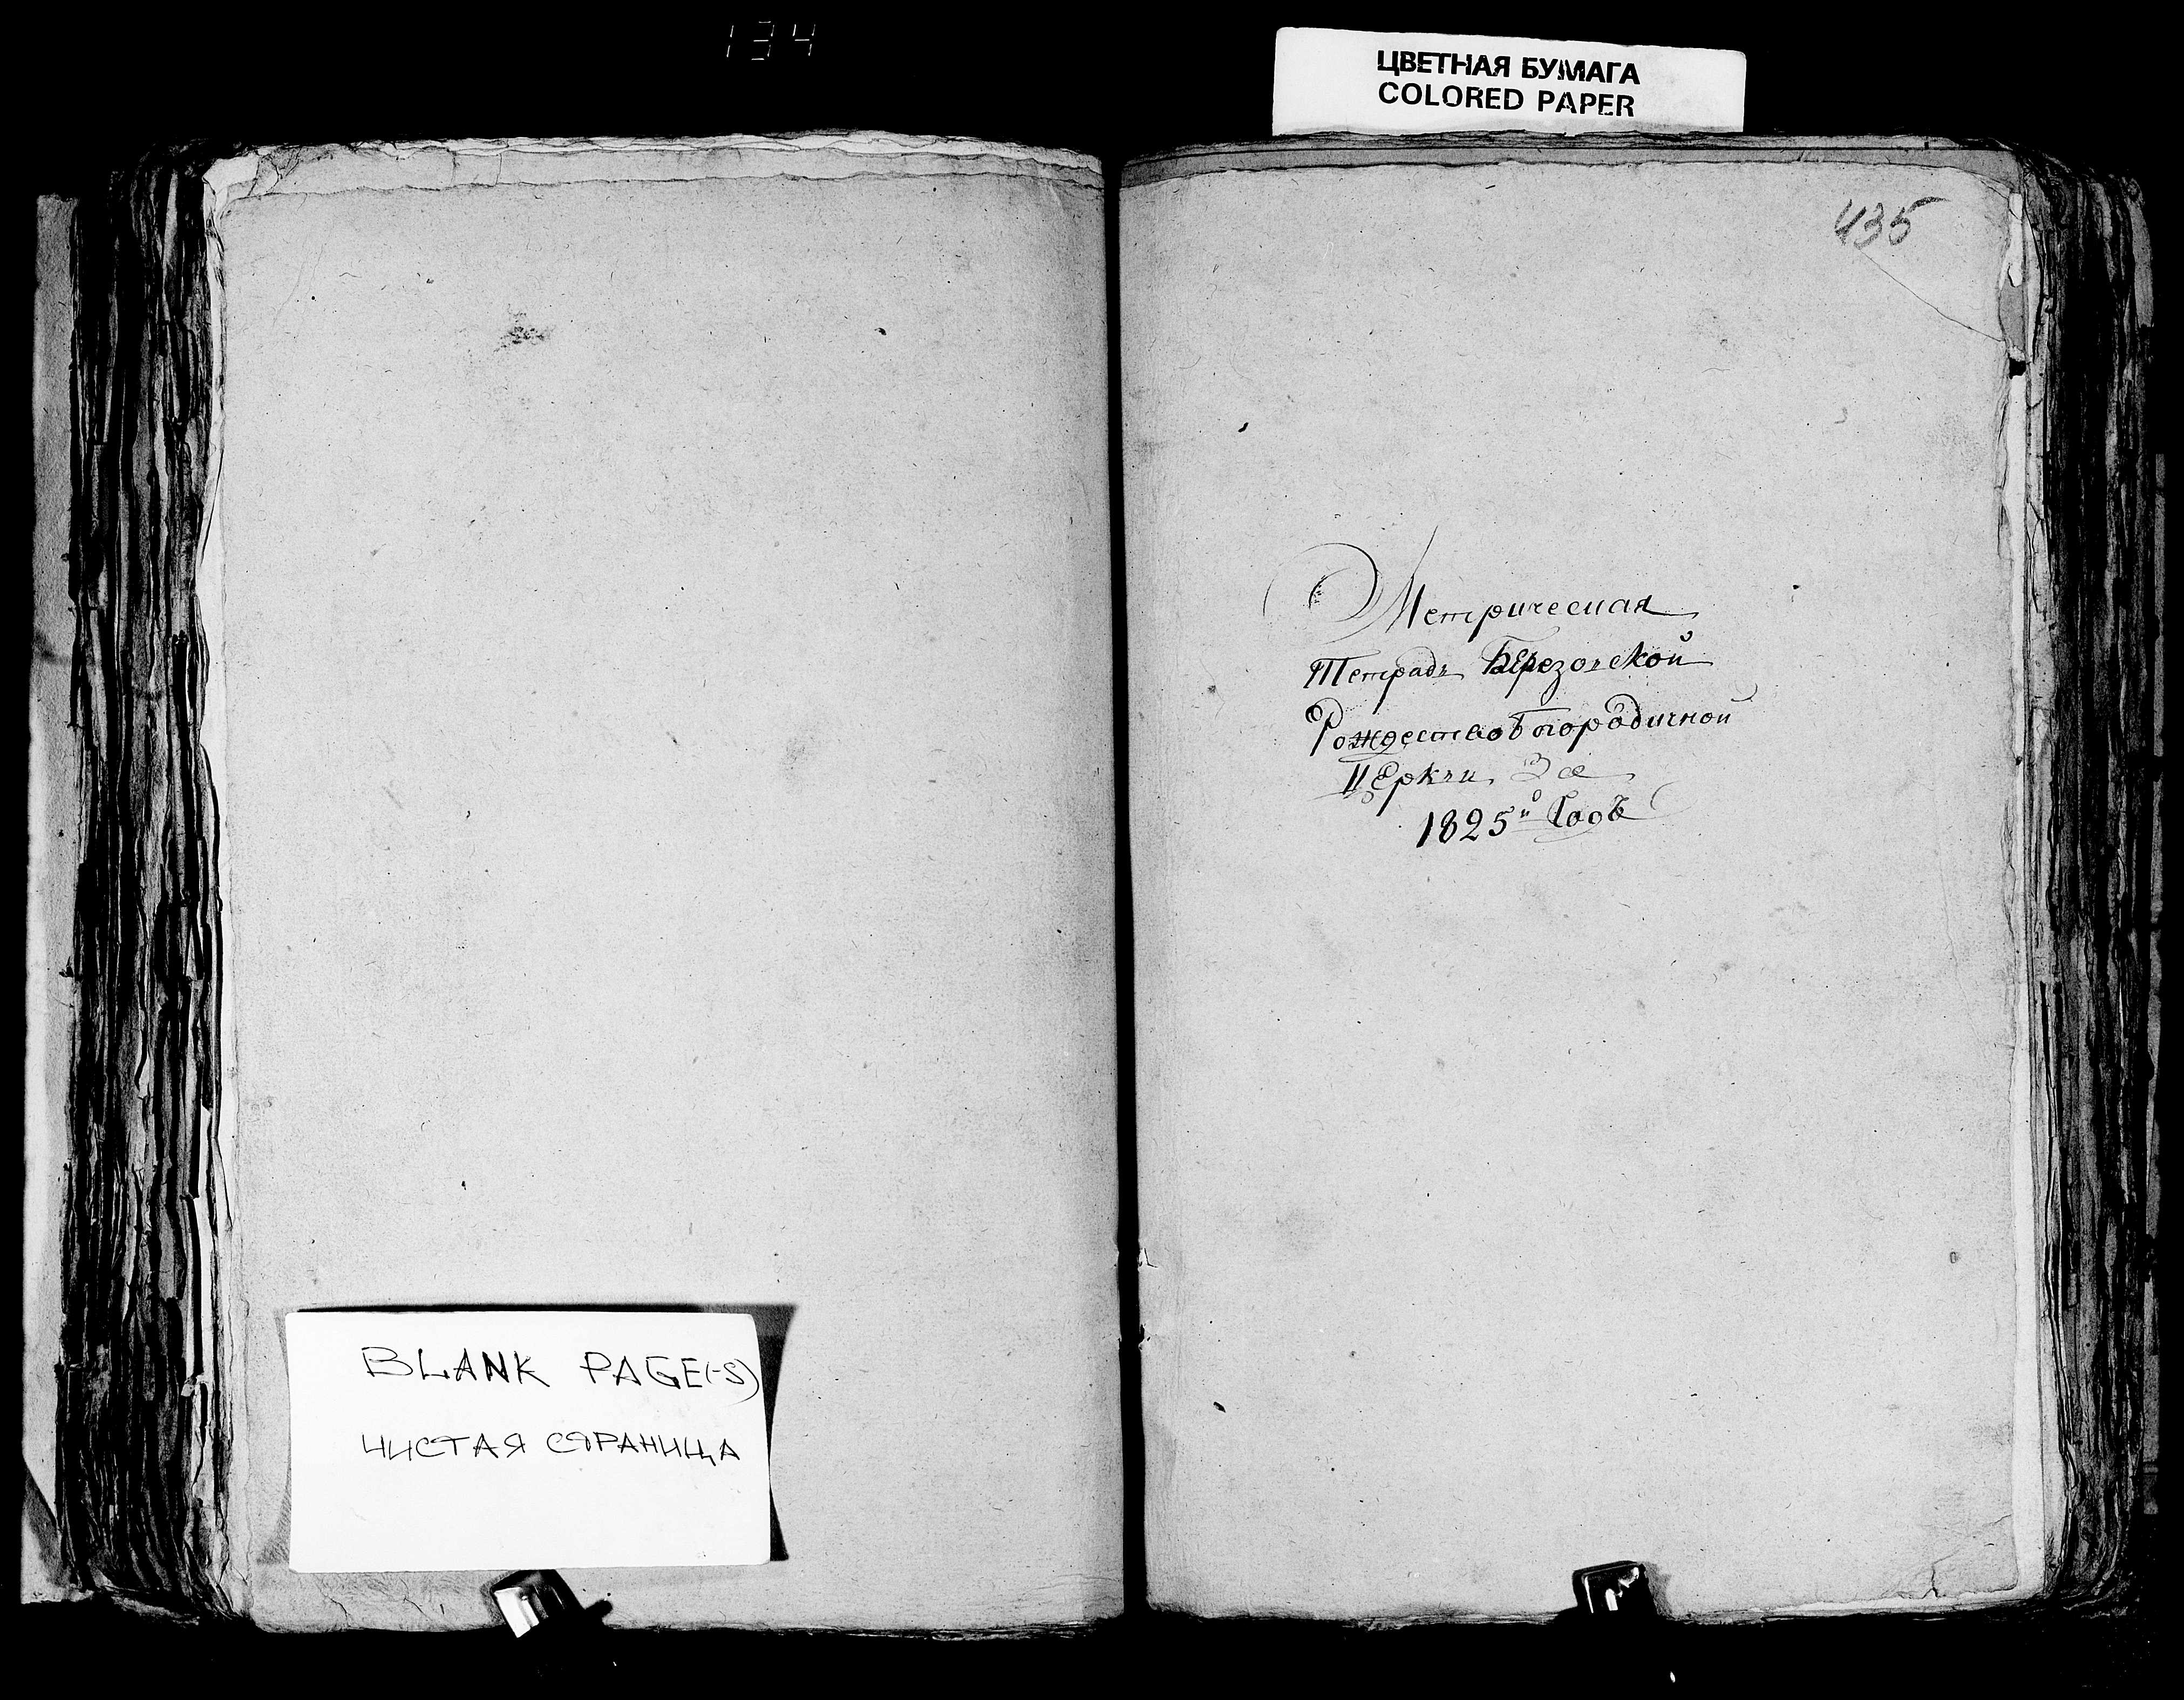 134
ЦВЕТНАЯ БУМАГА
COLORED PAPER
435
Метрическая
Тетрадь Березовской
Рождество Богородичной
Церкви За
1825й Годъ
BLANK PAGE(-S)
ЧИСТАЯ СТРАНИЦА